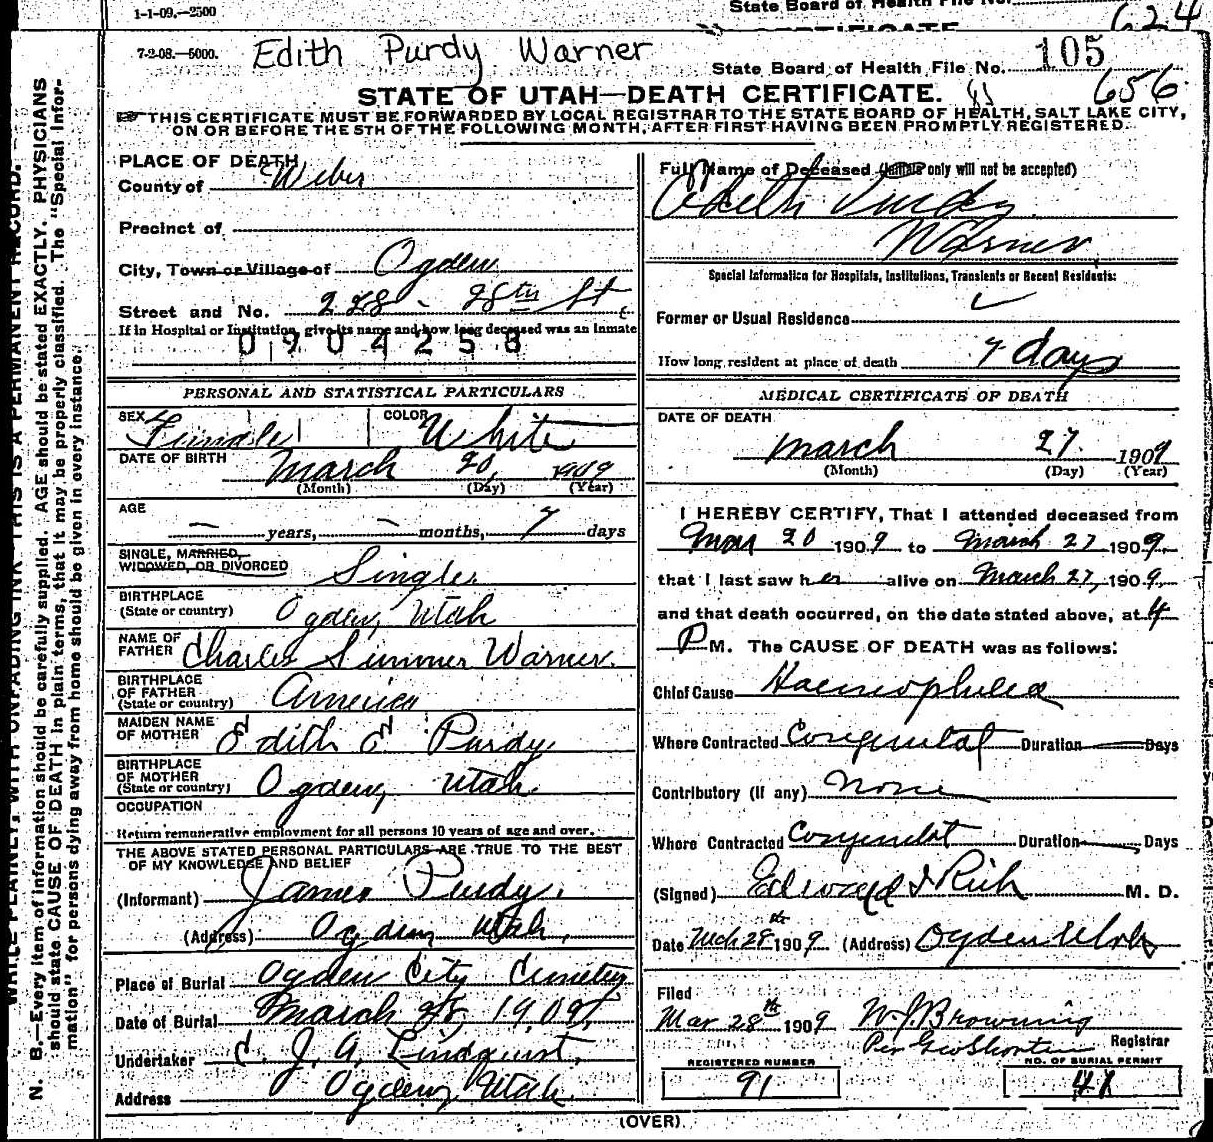 1-1-09.—2500
State Board of Health File No.
624
7-2-08.—5000.
Edith Purdy Warner
State Board of Health File No. 105
656
STATE OF UTAH—DEATH CERTIFICATE.
THIS CERTIFICATE MUST BE FORWARDED BY LOCAL REGISTRAR TO THE STATE BOARD OF HEALTH, SALT LAKE CITY,
ON OR BEFORE THE 5TH OF THE FOLLOWING MONTH, AFTER FIRST HAVING BEEN PROMPTLY REGISTERED.
N. B.—Every item of information should be carefully supplied. AGE should be stated EXACTLY. PHYSICIANS
should state CAUSE OF DEATH in plain terms, that it may be properly classified. The "Special Infor-
mation" for persons dying away from home should be given in every instance.
PLACE OF DEATH
County of Weber
Precinct of
City, Town or Village of Ogden
Street and No. 228 - 28th St.
If in Hospital or Institution, give its name and how long deceased was an Inmate
0904258
PERSONAL AND STATISTICAL PARTICULARS
SEX Female COLOR White
DATE OF BIRTH March 20, 1909
(Month) (Day) (Year)
AGE
— years, — months, 7 days
SINGLE, MARRIED,
WIDOWED, OR DIVORCED Single
BIRTHPLACE
(State or country) Ogden, Utah
NAME OF
FATHER Charles Sumner Warner.
BIRTHPLACE
OF FATHER
(State or country) America
MAIDEN NAME
OF MOTHER Edith E Purdy
BIRTHPLACE
OF MOTHER
(State or country) Ogden, Utah
OCCUPATION
Return remunerative employment for all persons 10 years of age and over.
THE ABOVE STATED PERSONAL PARTICULARS ARE TRUE TO THE BEST
OF MY KNOWLEDGE AND BELIEF
(Informant) James Purdy.
(Address) Ogden Utah.
Place of Burial Ogden City Cemetery
Date of Burial March 28, 1909
Undertaker J. A. Lindquist.
Address Ogden, Utah.
Full Name of Deceased (Initials only will not be accepted)
Edith Purdy
Warner
Special Information for Hospitals, Institutions, Transients or Recent Residents:
Former or Usual Residence
How long resident at place of death 7 days
MEDICAL CERTIFICATE OF DEATH
DATE OF DEATH
March 27. 1909
(Month) (Day) (Year)
I HEREBY CERTIFY, That I attended deceased from
Mar 20 1909 to March 27 1909,
that I last saw her alive on March 27, 1909,
and that death occurred, on the date stated above, at 4
P M. The CAUSE OF DEATH was as follows:
Chief Cause Haemophilea
Where Contracted Congenital Duration — Days
Contributory (if any) None
Where Contracted Congenital Duration — Days
(Signed) Edward I Rich M. D.
Date Mch 28th 1909 (Address) Ogden Utah
Filed
Mar 28th 1909 W J Browning
Per Geo Shorten Registrar
REGISTERED NUMBER NO. OF BURIAL PERMIT
91
(OVER)